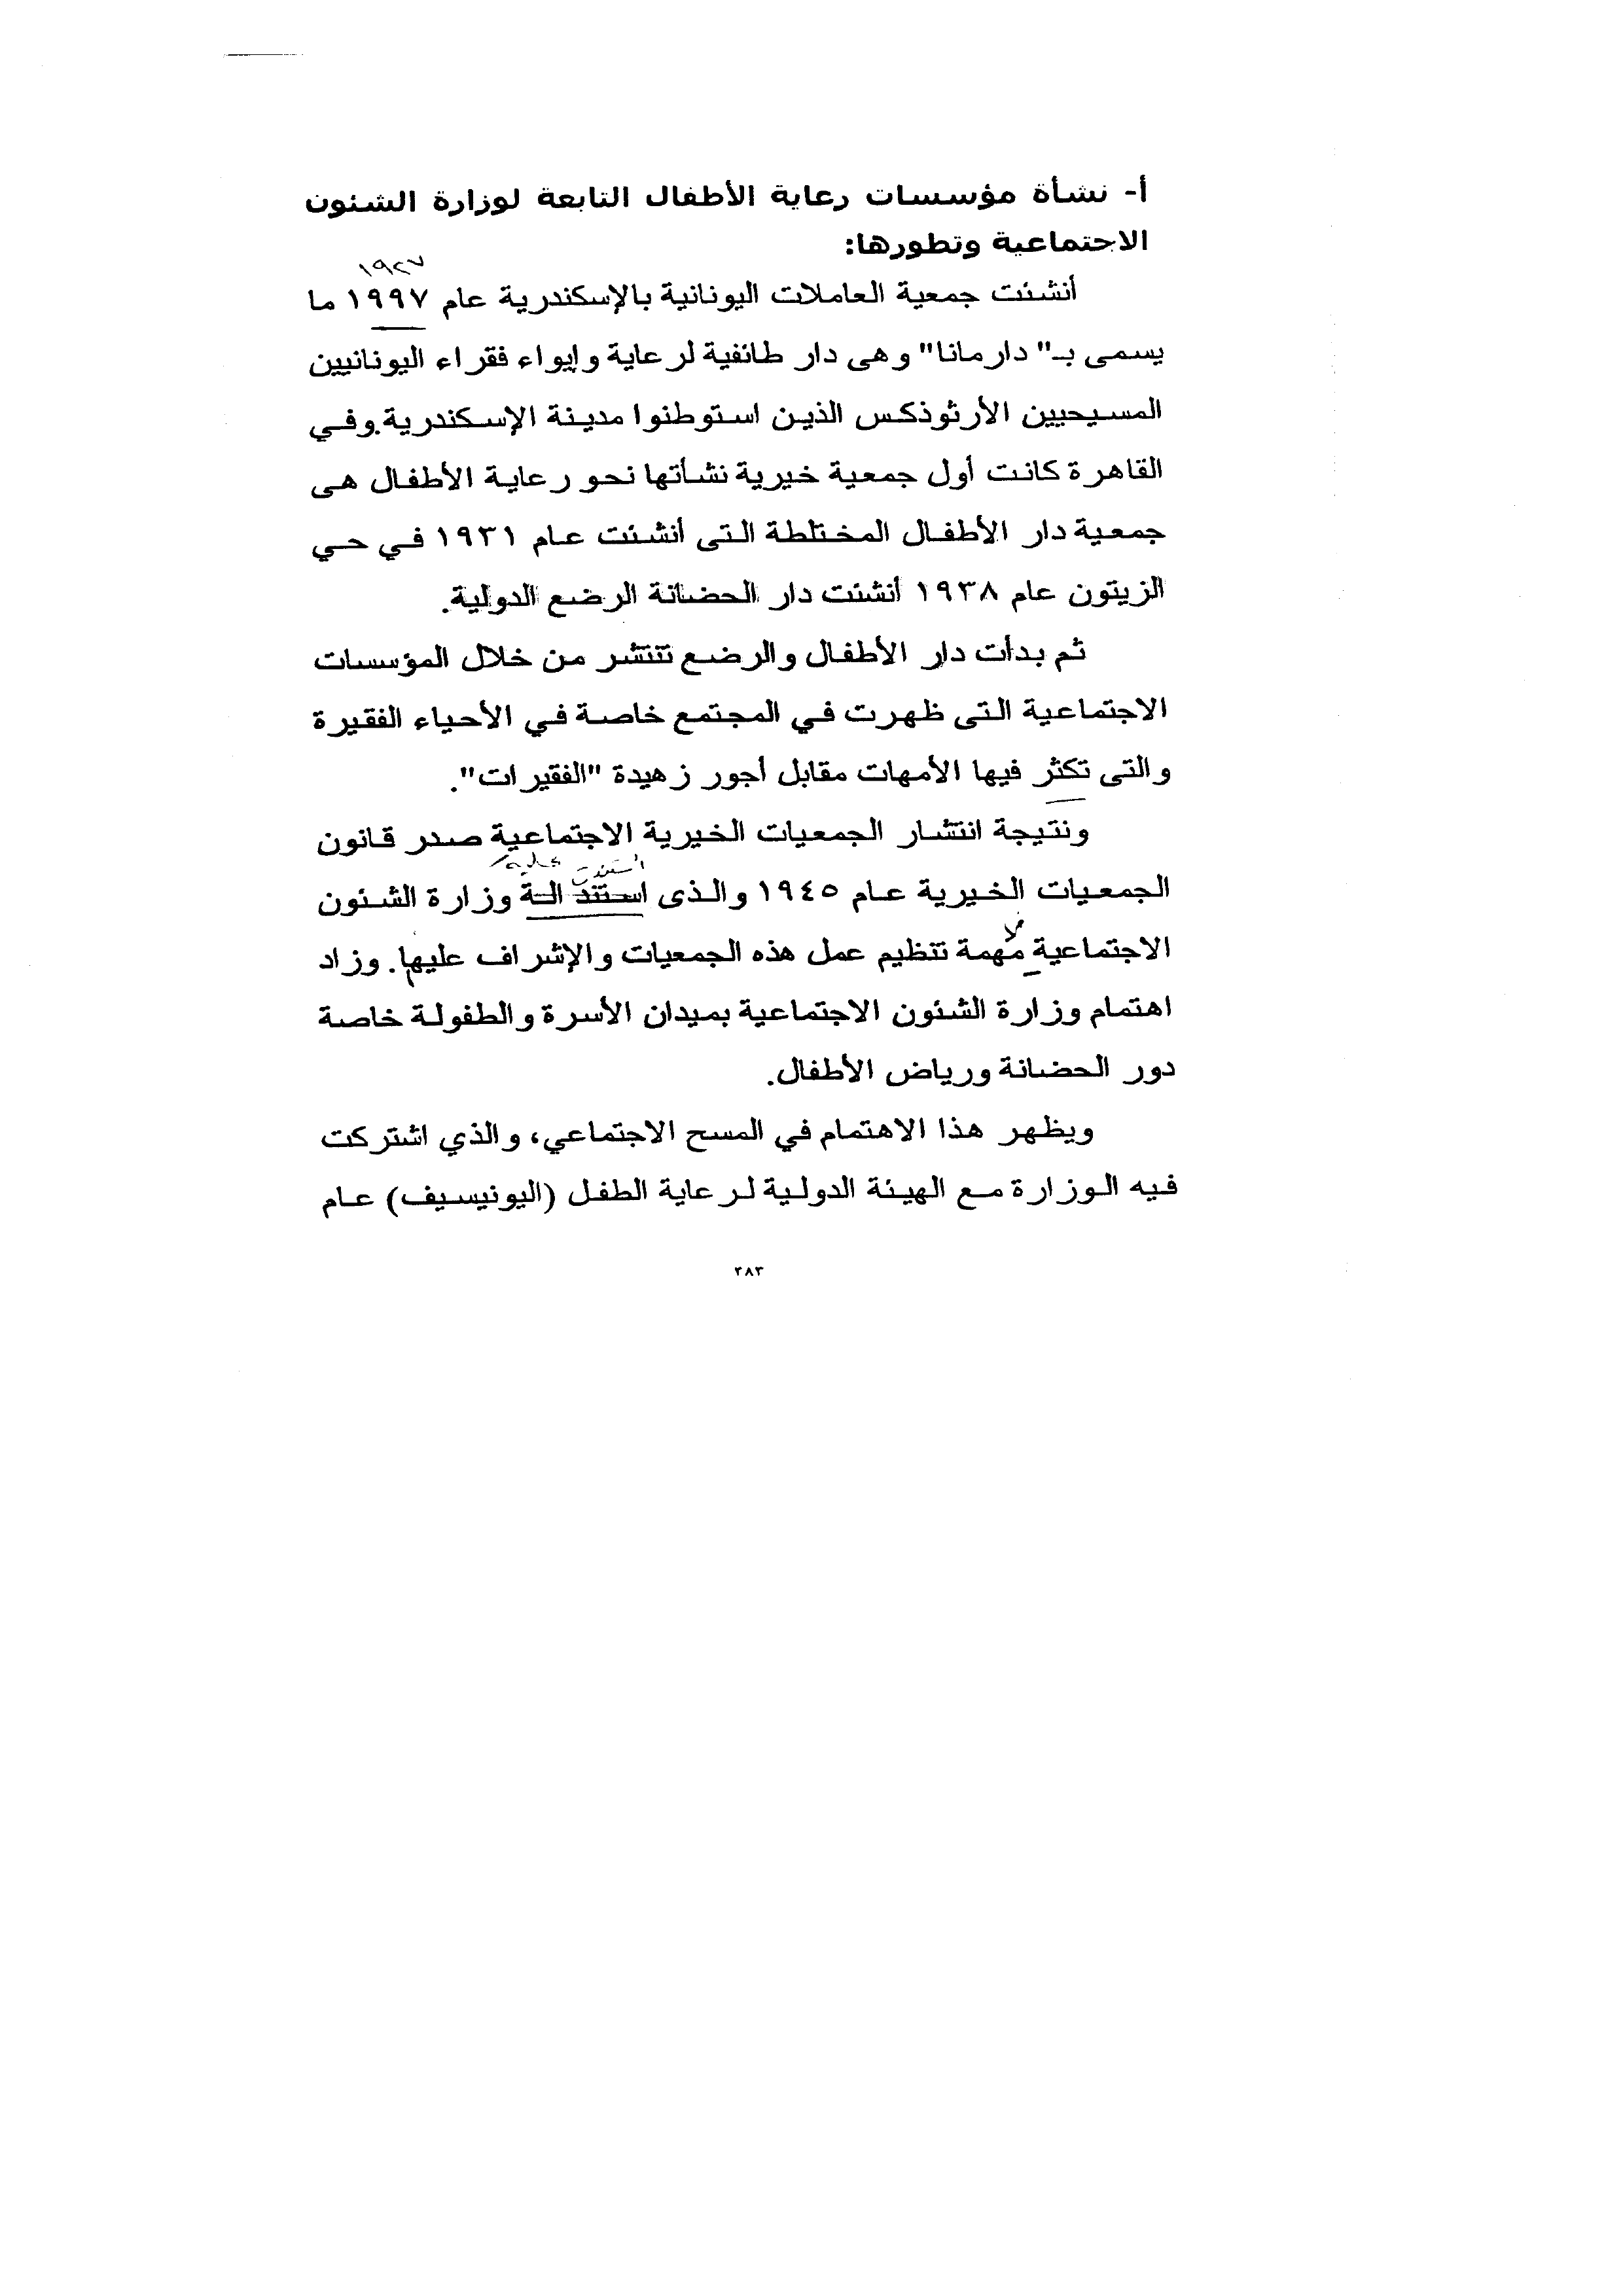 أ- نشأة مؤسسات رعاية الأطفال التابعة لوزارة الشئون
الاجتماعية وتطورها:
١٩٢٧
أنشئت جمعية العاملات اليونانية بالإسكندرية عام ١٩٩٧ ما
يسمى بـ" دار مانا" وهى دار طائفية لرعاية وإيواء فقراء اليونانيين
المسيحيين الأرثوذكس الذين استوطنوا مدينة الإسكندرية.وفي
القاهرة كانت أول جمعية خيرية نشأتها نحو رعاية الأطفال هى
جمعية دار الأطفال المختلطة التى أنشئت عام ١٩٣١ في حي
الزيتون عام ١٩٣٨ أنشئت دار الحضانة الرضع الدولية.
ثم بدأت دار الأطفال والرضع تنتشر من خلال المؤسسات
الاجتماعية التى ظهرت في المجتمع خاصة في الأحياء الفقيرة
والتى تكثر فيها الأمهات مقابل أجور زهيدة "الفقيرات".
ونتيجة انتشار الجمعيات الخيرية الاجتماعية صدر قانون
الجمعيات الخيرية عام ١٩٤٥ والذى استند الة وزارة الشئون
الاجتماعية مهمة تنظيم عمل هذه الجمعيات والإشراف عليها. وزاد
اهتمام وزارة الشئون الاجتماعية بميدان الأسرة والطفولة خاصة
دور الحضانة ورياض الأطفال.
ويظهر هذا الاهتمام في المسح الاجتماعي، والذي اشتركت
فيه الوزارة مع الهيئة الدولية لرعاية الطفل (اليونيسيف) عام
٣٨٣